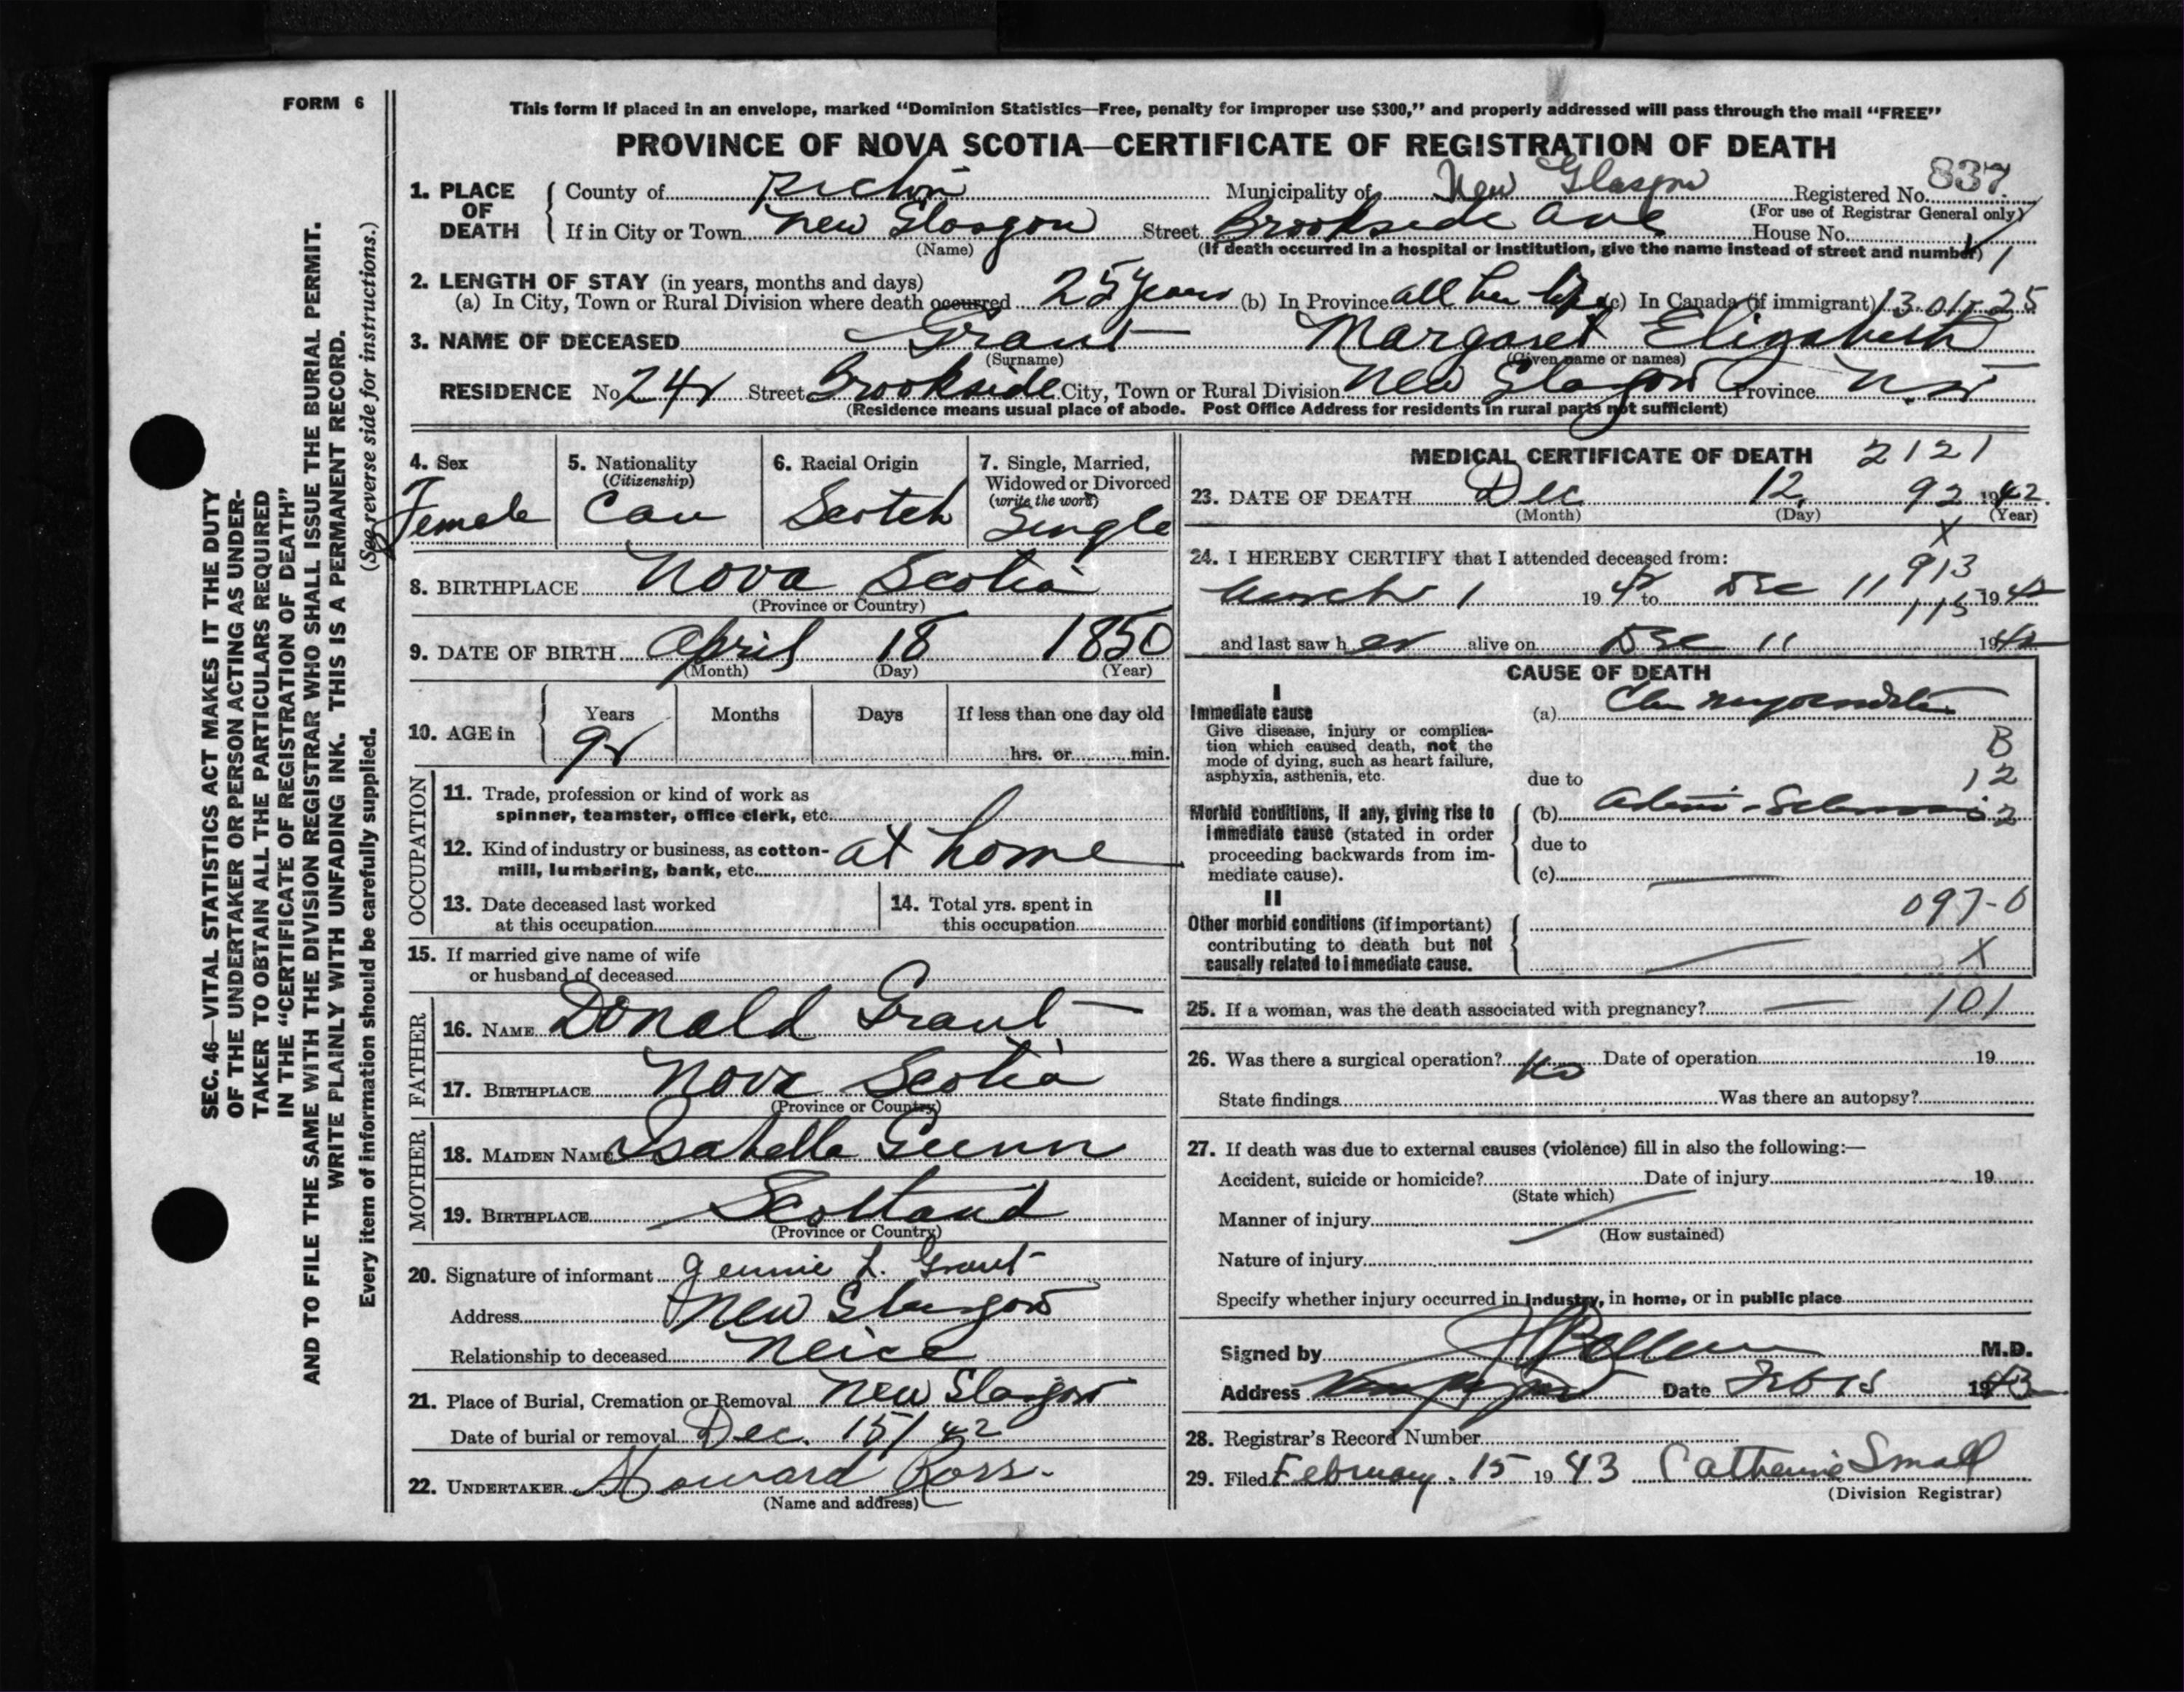 FORM 6
This form if placed in an envelope, marked “Dominion Statistics—Free, penalty for improper use $300,” and properly addressed will pass through the mail “FREE”
PROVINCE OF NOVA SCOTIA—CERTIFICATE OF REGISTRATION OF DEATH
1. PLACE OF DEATH
County of Pictou Municipality of New Glasgow Registered No. 837
(For use of Registrar General only)
If in City or Town New Glasgow Street Brookside Ave House No.
(Name) (If death occurred in a hospital or institution, give the name instead of street and number)
2. LENGTH OF STAY (in years, months and days)
(a) In City, Town or Rural Division where death occurred 25 years (b) In Province all her life (c) In Canada (if immigrant)
3. NAME OF DECEASED Grant Margaret Elizabeth
(Surname) (Given name or names)
RESIDENCE No. 242 Street Brookside City, Town or Rural Division New Glasgow Province N.S.
(Residence means usual place of abode. Post Office Address for residents in rural parts not sufficient)
4. Sex
Female
5. Nationality
(Citizenship)
Can
6. Racial Origin
Scotch
7. Single, Married,
Widowed or Divorced
(write the word)
Single
8. BIRTHPLACE Nova Scotia
(Province or Country)
9. DATE OF BIRTH April 18 1850
(Month) (Day) (Year)
10. AGE in
Years Months Days If less than one day old
92 hrs. or min.
OCCUPATION
11. Trade, profession or kind of work as
spinner, teamster, office clerk, etc.
12. Kind of industry or business, as cotton-
mill, lumbering, bank, etc. at home
13. Date deceased last worked
at this occupation
14. Total yrs. spent in
this occupation
15. If married give name of wife
or husband of deceased
FATHER
16. NAME Donald Grant
17. BIRTHPLACE Nova Scotia
(Province or Country)
MOTHER
18. MAIDEN NAME Isabella Gunn
19. BIRTHPLACE Scotland
(Province or Country)
20. Signature of informant Jennie L. Grant
Address New Glasgow
Relationship to deceased Neice
21. Place of Burial, Cremation or Removal New Glasgow
Date of burial or removal Dec. 15/42
22. UNDERTAKER Howard Ross.
(Name and address)
MEDICAL CERTIFICATE OF DEATH 2121
23. DATE OF DEATH Dec 12, 92 1942
(Month) (Day) (Year)
X
24. I HEREBY CERTIFY that I attended deceased from:
913
March 1 1942 to Dec 11 1942
115
and last saw h er alive on Dec 11 1942
CAUSE OF DEATH
I
Immediate cause
Give disease, injury or complica-
tion which caused death, not the
mode of dying, such as heart failure,
asphyxia, asthenia, etc.
(a) Chr myocarditis
B
12
due to
Morbid conditions, if any, giving rise to
immediate cause (stated in order
proceeding backwards from im-
mediate cause).
(b)
due to
(c)
097-0
II
Other morbid conditions (if important)
contributing to death but not
causally related to immediate cause.
X
25. If a woman, was the death associated with pregnancy? 101
26. Was there a surgical operation? No Date of operation 19
State findings Was there an autopsy?
27. If death was due to external causes (violence) fill in also the following:—
Accident, suicide or homicide? Date of injury 19
(State which)
Manner of injury
(How sustained)
Nature of injury
Specify whether injury occurred in industry, in home, or in public place
Signed by M.D.
Address Date Feb 15 1943
28. Registrar's Record Number
29. Filed February. 15 1943 Catherine Small
(Division Registrar)
SEC. 46—VITAL STATISTICS ACT MAKES IT THE DUTY
OF THE UNDERTAKER OR PERSON ACTING AS UNDER-
TAKER TO OBTAIN ALL THE PARTICULARS REQUIRED
IN THE “CERTIFICATE OF REGISTRATION OF DEATH”
AND TO FILE THE SAME WITH THE DIVISION REGISTRAR WHO SHALL ISSUE THE BURIAL PERMIT.
WRITE PLAINLY WITH UNFADING INK. THIS IS A PERMANENT RECORD.
Every item of information should be carefully supplied. (See reverse side for instructions.)